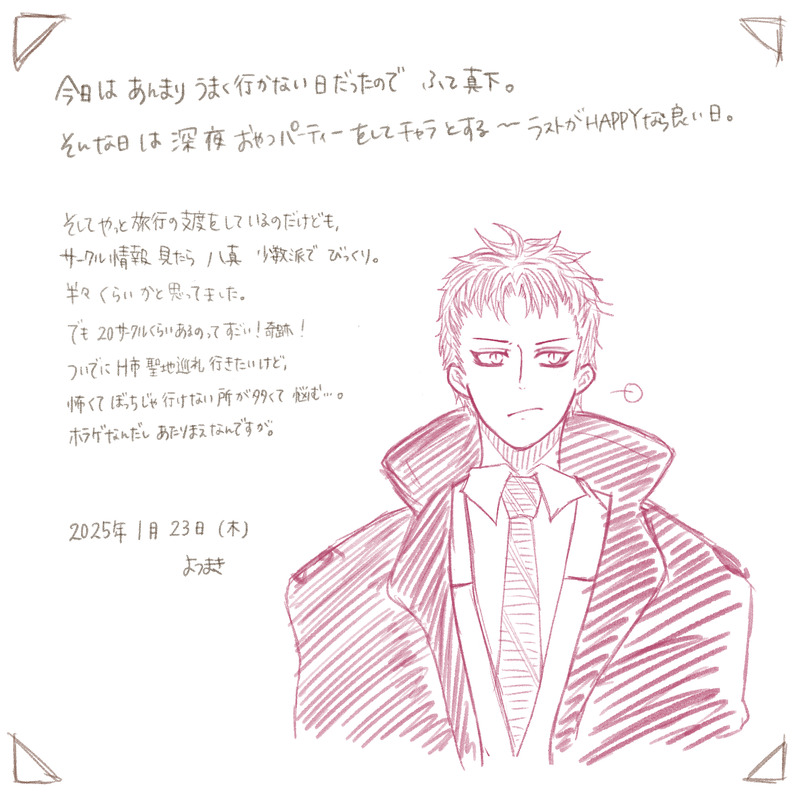 今日は あんまり うまく行かない日だったので ふて真下。
そんな日は 深夜 おやつパーティーをしてチャラとする〜 ラストがHAPPYなら良い日。
そしてやっと旅行の支度をしているのだけども、
サークル情報 見たら 八真 少数派で びっくり。
半々くらいかと思ってました。
でも 20サークルくらいあるのってすごい!奇跡!
ついでに H市 聖地巡礼 行きたいけど、
怖くて ぼっちじゃ行けない所が多くて 悩む…。
ホラゲなんだし あたりまえなんですが。
2025年 1月 23日 (木)
よつまき